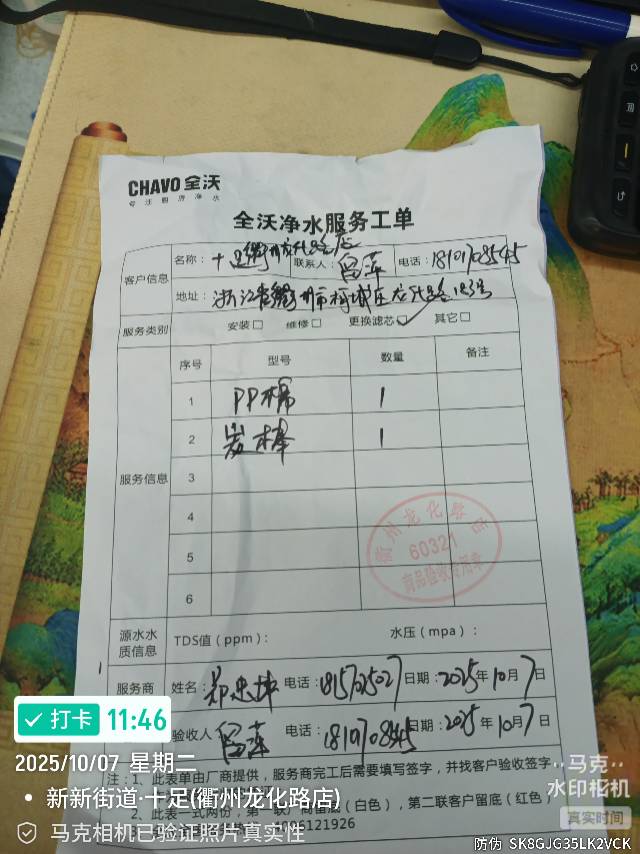 CHAVO 全沃
专注厨房净水
全沃净水服务工单
客户信息
名称：十足衢州龙化路店 联系人：留萍 电话：18101708545
地址：浙江省衢州市柯城区龙化路183号
服务类别 安装□ 维修□ 更换滤芯☑ 其它□
服务信息
序号 型号 数量 备注
1 PP棉 1
2 炭棒 1
3
4
5
6
衢州龙化路店
60321
商品验收专用章
源水水质信息 TDS值（ppm）： 水压（mpa）：
服务商 姓名：郑忠坤 电话： 日期：2025年10月7日
验收人 留萍 电话： 日期：2025年10月7日
注：1、此表单由厂商提供，服务商完工后需要填写签字，并找客户验收签字
2、此表一式两份，第一联厂商留底（白色），第二联客户留底（红色）
4006121926
打卡 11:46
2025/10/07 星期二
新新街道·十足(衢州龙化路店)
马克相机已验证照片真实性
马克
水印相机
真实时间
防伪 SK8GJG35LK2VCK